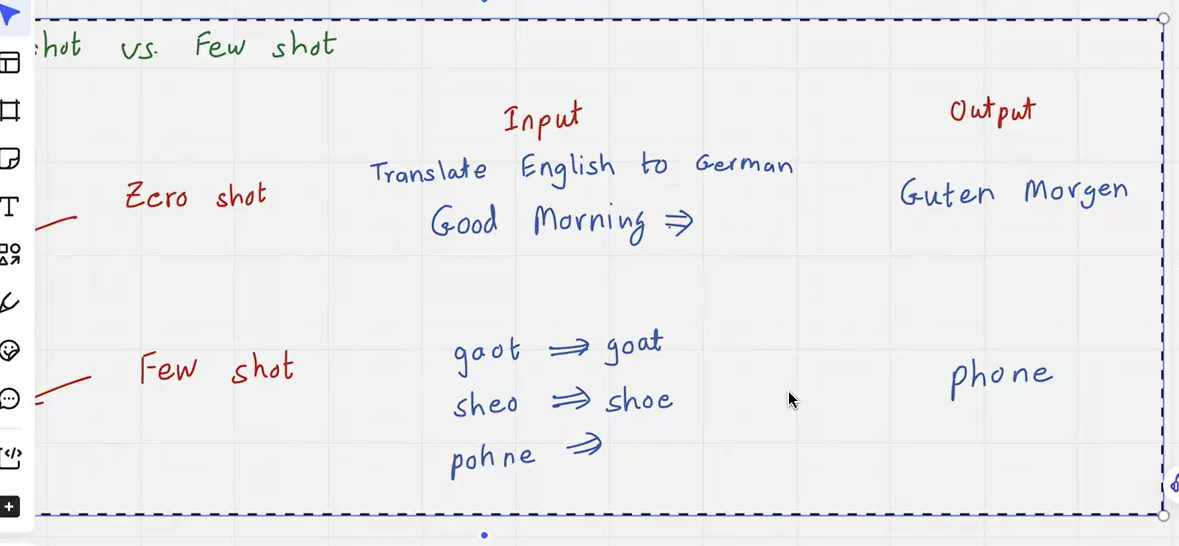 hot vs. Few shot
Input
Output
Zero shot
Translate English to German
Good Morning ⇒
Guten Morgen
Few shot
gaot ⇒ goat
sheo ⇒ shoe
pohne ⇒
phone